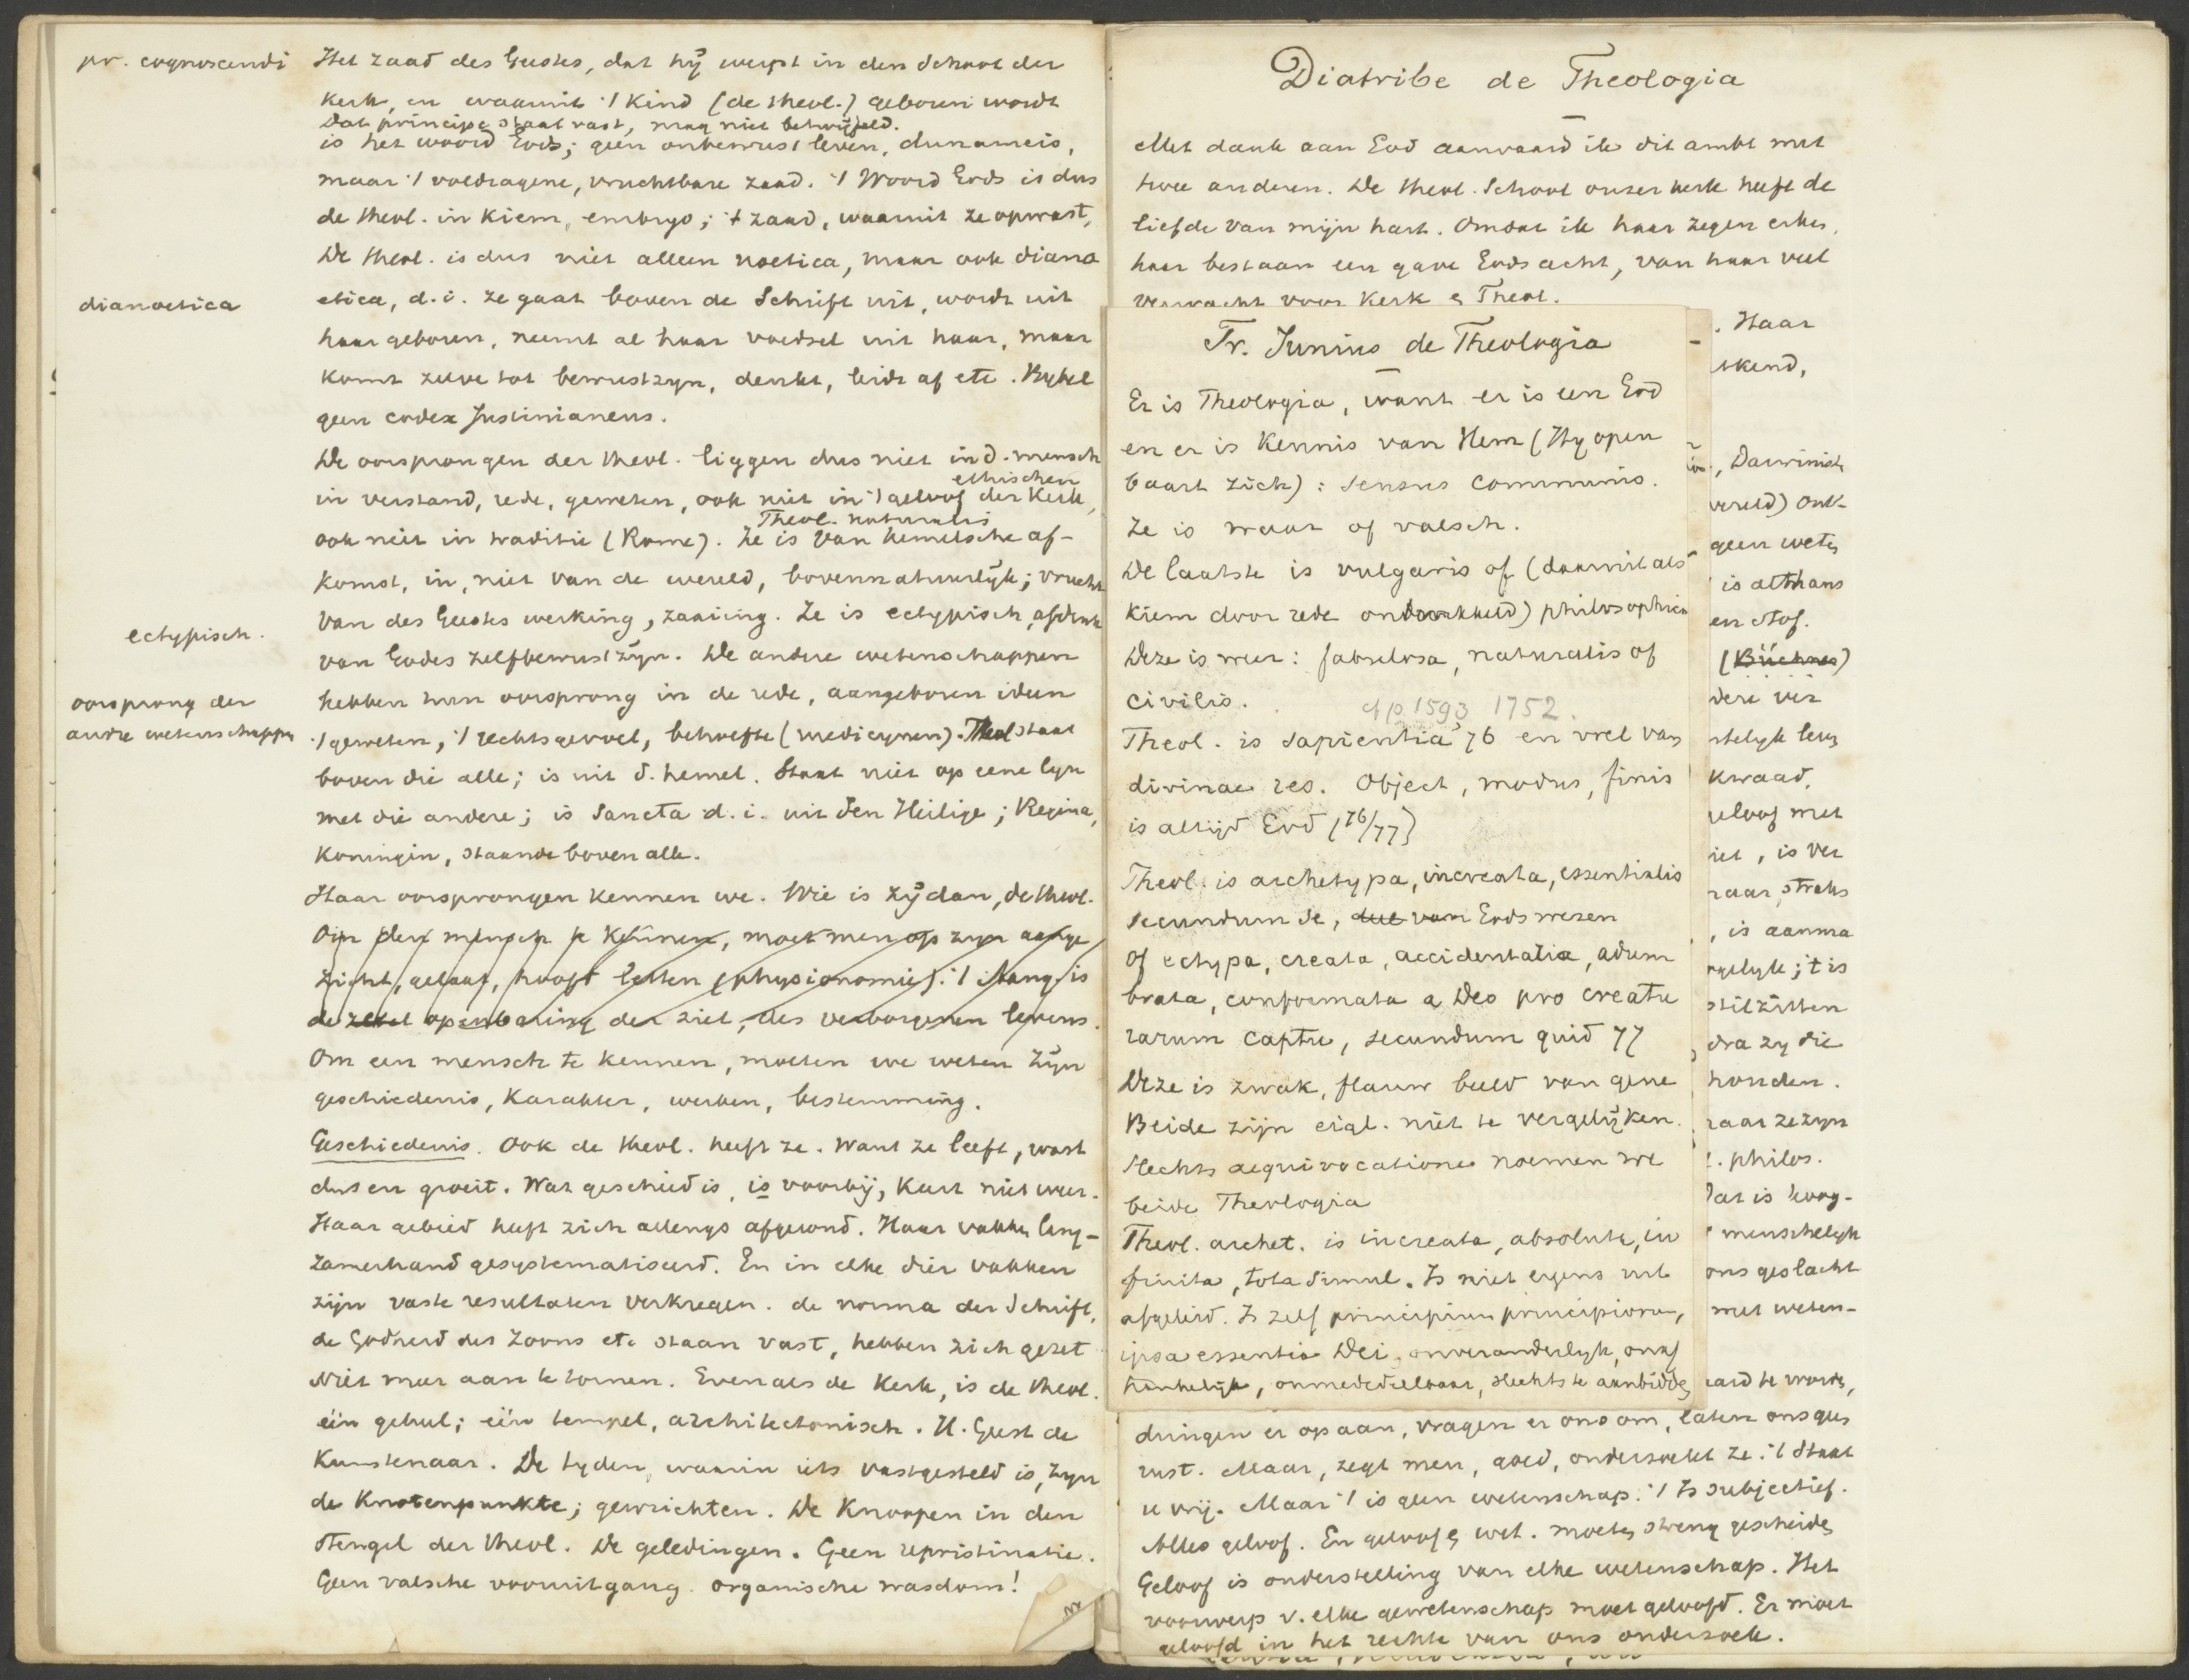 pr. cognoscendi
Het zaad des Geestes, dat hij werpt in den Schoot der
Kerk, en waaruit 't Kind (de theol.) geboren wordt
Dat principe staat vast, mag niet betwijfeld.
is het woord Gods; geen onbewust leven, dunameis,
maar 't voldragene, vruchtbare zaad. 't Woord Gods is dus
de theol. in Kiem, embryo; 't zaad, waaruit ze opwast,
De theol. is dus niet alleen noetica, maar ook diano
dianoetica
etica, d.i. ze gaat boven de Schrift uit, wordt uit
haar geboren, neemt al haar voedsel uit haar, maar
komt zelve tot bewustzyn, denkt, leidt af etc. Bybel
geen codex Justinianeus.
De oorsprongen der theol. liggen dus niet in d. mensch
ethischen
in verstand, rede, geweten, ook niet in 't geloof der Kerk,
Theol. naturalis
ook niet in traditie (Rome). Ze is van hemelsche af-
komst, in, niet van de wereld, bovennatuurlijk; vrucht
van des Geestes werking, zaaiing. Ze is ectypisch, afdruk
ectypisch.
van Godes zelfbewustzijn. De andere wetenschappen
hebben hun oorsprong in de rede, aangeboren ideen
oorsprong der
andre wetenschappn
't geweten, 't rechtsgevoel, behoefte (medicynen). Theol staat
boven die alle; is uit d. hemel. Staat niet op eene lyn
met die andere; is Sancta d.i. uit den Heilige; Regina,
Koningin, staande boven alle.
Haar oorsprongen kennen we. Wie is zij dan, de theol.
Om den mensch te kennen, moet men op zyn aange
zicht, gelaat, hoofd letten (physionomie). 't is
de zetel openbaring der ziel, des verborgenen levens.
Om een mensch te kennen, moeten we weten zijn
geschiedenis, Karakter, werken, bestemming.
Geschiedenis. Ook de theol. heeft ze. Want ze leeft, wast
dus en groeit. Wat geschied is, is voorbij, Kan niet weer.
Haar gebied heeft zich allengs afgerond. Haar vakken lang-
zamerhand gesystematiseerd. En in elke dier vakken
zijn vaste resultaten verkregen. de norma der Schrift,
de Godheid des Zoons etc staan vast, hebben zich gezet
Niet meer aan te tornen. Evenals de Kerk, is de theol.
één geheel; één tempel, architectonisch. H. Geest de
Kunstenaar. De tyden, waarin iets vastgesteld is, zyn
de Knotenpunkte; gewrichten. De Knoopen in den
Stengel der theol. De geledingen. Geen repristinatie.
Geen valsche vooruitgang. organische wasdom!
Diatribe de Theologia
Met dank aan God aanvaard ik dit ambt met
twee anderen. De theol. School onzer kerk heeft de
liefde van mijn hart. Omdat ik haar zegen erken,
haar bestaan een gave Gods acht, van haar veel
verwacht voor Kerk & Theol.
Fr. Junius de Theologia
Er is Theologia, want er is een God
en er is Kennis van Hem (Hy open
baart zich): Sensus communis.
Ze is waar of valsch.
De laatste is vulgaris of (daaruit als
Kiem door rede ontwikkeld) philosophica
Deze is weer: fabulosa, naturalis of
civilis.
cf p. 1593 1752.
Theol. is Sapientia 76 en wel van
divinae res. Object, modus, finis
is altijd God (76/77)
Theol. is archetypa, increata, essentialis
secundum se, Gods wezen
of ectypa, creata, accidentalia, adum
brata, conformata a Deo pro creatu
rarum captu, secundum quid 77
Deze is zwak, flauw beeld van gene
Beide zijn eigl. niet te vergelijken.
slechts aequivocatione noemen we
beide Theologia
Theol. archet. is increata, absoluta, in
finita, tota simul. Is niet ergens uit
afgeleid. Is zelf principium principiorum,
ipsa essentia Dei, onveranderlyk, onaf
hankelijk, onmededeelbaar, slechts te aanbidden
. Haar
rkend,
, Darwinist
wereld) ont-
geen weten
is althans
en stof.
(Büchner)
dere ver
stelyk leven
kwaad,
geloof met
niet, is ver
raar, straks
, is aanma
gelyk; 't is
stilzitten
dra zy die
honden.
raar ze zyn
. philos.
Dat is hoog-
menschelyk
ons geslacht
met weten-
eard te worden,
dringen er op aan, vragen er ons om, laten ons geen
rust. Maar, zegt men, goed, onderzoekt ze. 't Staat
u vrij. Maar 't is geen wetenschap. 't Is subjectief.
Alles geloof. En geloof & wet. moeten streng gescheiden
Geloof is onderstelling van elke wetenschap. Het
voorwerp v. elke wetenschap moet geloofd. Er moet
geloofd in het rechte van ons onderzoek.